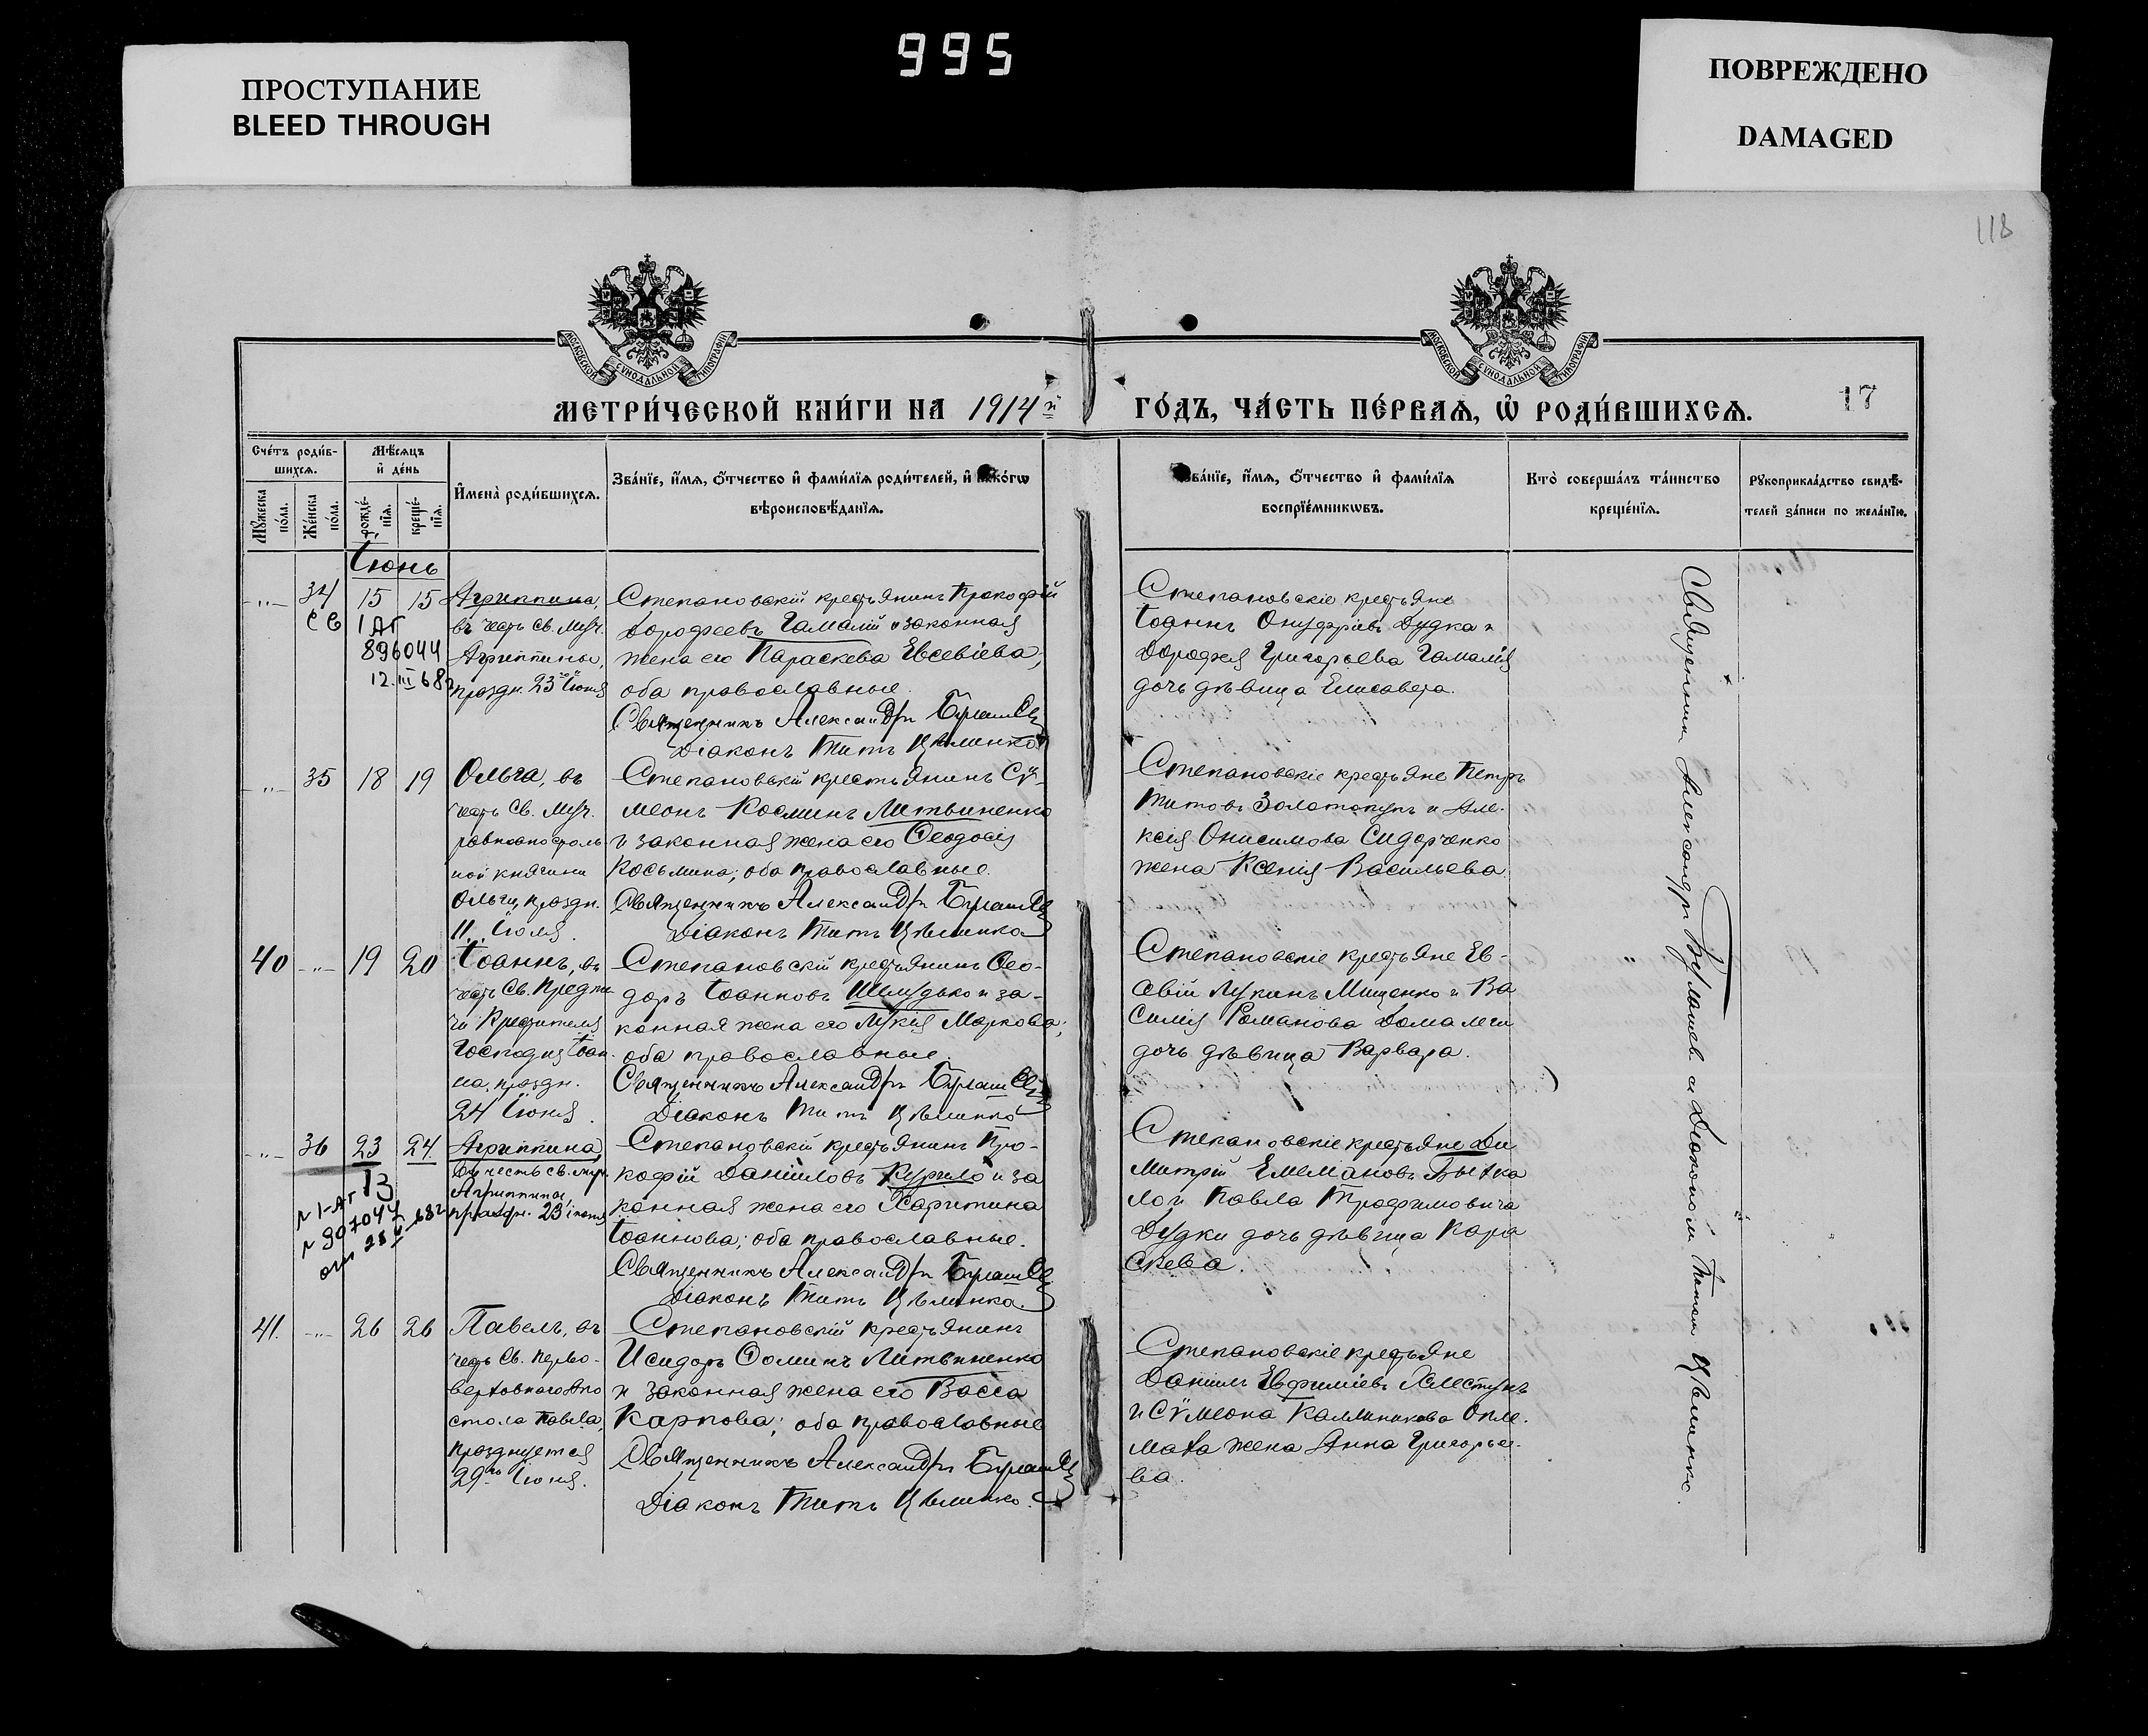 995
ПРОСТУПАНИЕ
BLEED THROUGH
ПОВРЕЖДЕНО
DAMAGED
118
МОСКОВСКОЙ СѴНОДАЛЬНОЙ ТИПОГРАФІИ
МОСКОВСКОЙ СѴНОДАЛЬНОЙ ТИПОГРАФІИ
МЕТРИ́ЧЕСКОЙ КНИ́ГИ НА 1914й
ГО́ДЪ, ЧА́СТЬ ПЕ́РВАѦ, Ѡ҆ РОДИ́ВШИХСѦ.
17
Сче́тъ роди́в-
шихсѧ.
Му́жеска по́ла.
Же́нска по́ла.
Мѣ́сѧцъ
и҆ де́нь
рожде́-
нїѧ.
креще́-
нїѧ.
И҆мена̀ роди́вшихсѧ.
Зва́нїе, и҆́мѧ, ѻ҆́тчество и҆ фами́лїѧ роди́телей, и҆ какогѡ
вѣроисповѣ́данїѧ.
Зва́нїе, и҆́мѧ, ѻ҆́тчество и҆ фами́лїѧ
воспрїе́мникѡвъ.
Кто̀ соверша́лъ та́инство
креще́нїѧ.
Рꙋкоприкла́дство свидѣ́-
телей за́писи по жела́нїю.
Іюнь
34 15 15 Агриппина,
въ честь св. муч.
Агриппины,
праздн. 23го Іюня
Св 1 АГ
896044
12.III 68г
Степановскій крестьянинъ Прокофій
Дорофеевъ Гамалій и законная
жена его Параскева Евсевіева;
оба православные.
Священникъ Александръ
Діаконъ Титъ Цѣлинко
Степановскіе крестьяне
Іоаннъ Онуфріевъ Дудка и
Дорофея Григорьева Гамалія
дочь дѣвица Елисавета.
35 18 19 Ольга, въ
честь Св. Муч.
равноапостоль-
ной княгини
Ольги, праздн.
11 Іюля.
Степановскій крестьянинъ Сѵ-
меонъ Косминъ Литвиненко
и законная жена его Ѳеодосія
Косьмина; оба православные.
Священникъ Александръ
Діаконъ Титъ Цѣлинко
Степановскіе крестьяне Петръ
Титовъ Золотопупъ и Але-
ксія Онисимова Сидорченко
жена Ксенія Васильева
40 19 20 Іоаннъ, въ
честь Св. Предте-
чи Крестителя
Господня Іоан-
на, праздн.
24 Іюня.
Степановскій крестьянинъ Ѳео-
доръ Іоанновъ Шелудько и за-
конная жена его Лукія Маркова;
оба православные.
Священникъ Александръ
Діаконъ Титъ Цѣлинко
Степановскіе крестьяне Ев-
севій Лукинъ Мищенко и Ва
силія Романова
дочь дѣвица Варвара.
36 23 24 Агриппина
въ честь св. муч.
Агриппины,
праздн. 23 іюня
13
№ 1-АГ
№ 907044
от
Степановскій крестьянинъ Про-
кофій Даніиловъ Курило и за
конная жена его Харитина
Іоаннова; оба православные.
Священникъ Александръ
Діаконъ Титъ Цѣлинко.
Степановскіе крестьяне Ди
митрій Емеліановъ
и Павла Трофимовича
Дудки дочь дѣвица Пара
скева.
41. 26 26 Павелъ, въ
честь Св. Перво-
верховнаго Апо
стола Павла,
празднуется
29го Іюня.
Степановскій крестьянинъ
Исидоръ Ѳоминъ Литвиненко
и законная жена его Васса
Карпова; оба православные
Священникъ Александръ
Діаконъ Титъ Цѣлинко.
Степановскіе крестьяне
Даніилъ Евфиміевъ
и Сѵмеона Каллиникова
жена Анна Григорье-
ва.
Священникъ Александръ и Діаконъ Титъ Цѣлинко.